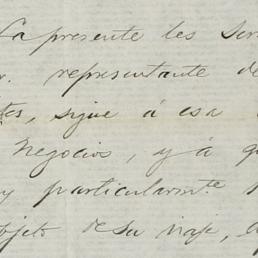 La presente les ser
r. representante de
tes, sigue á esa
Negocios, y á q
y particularmte.
bjeto de su viaje, d